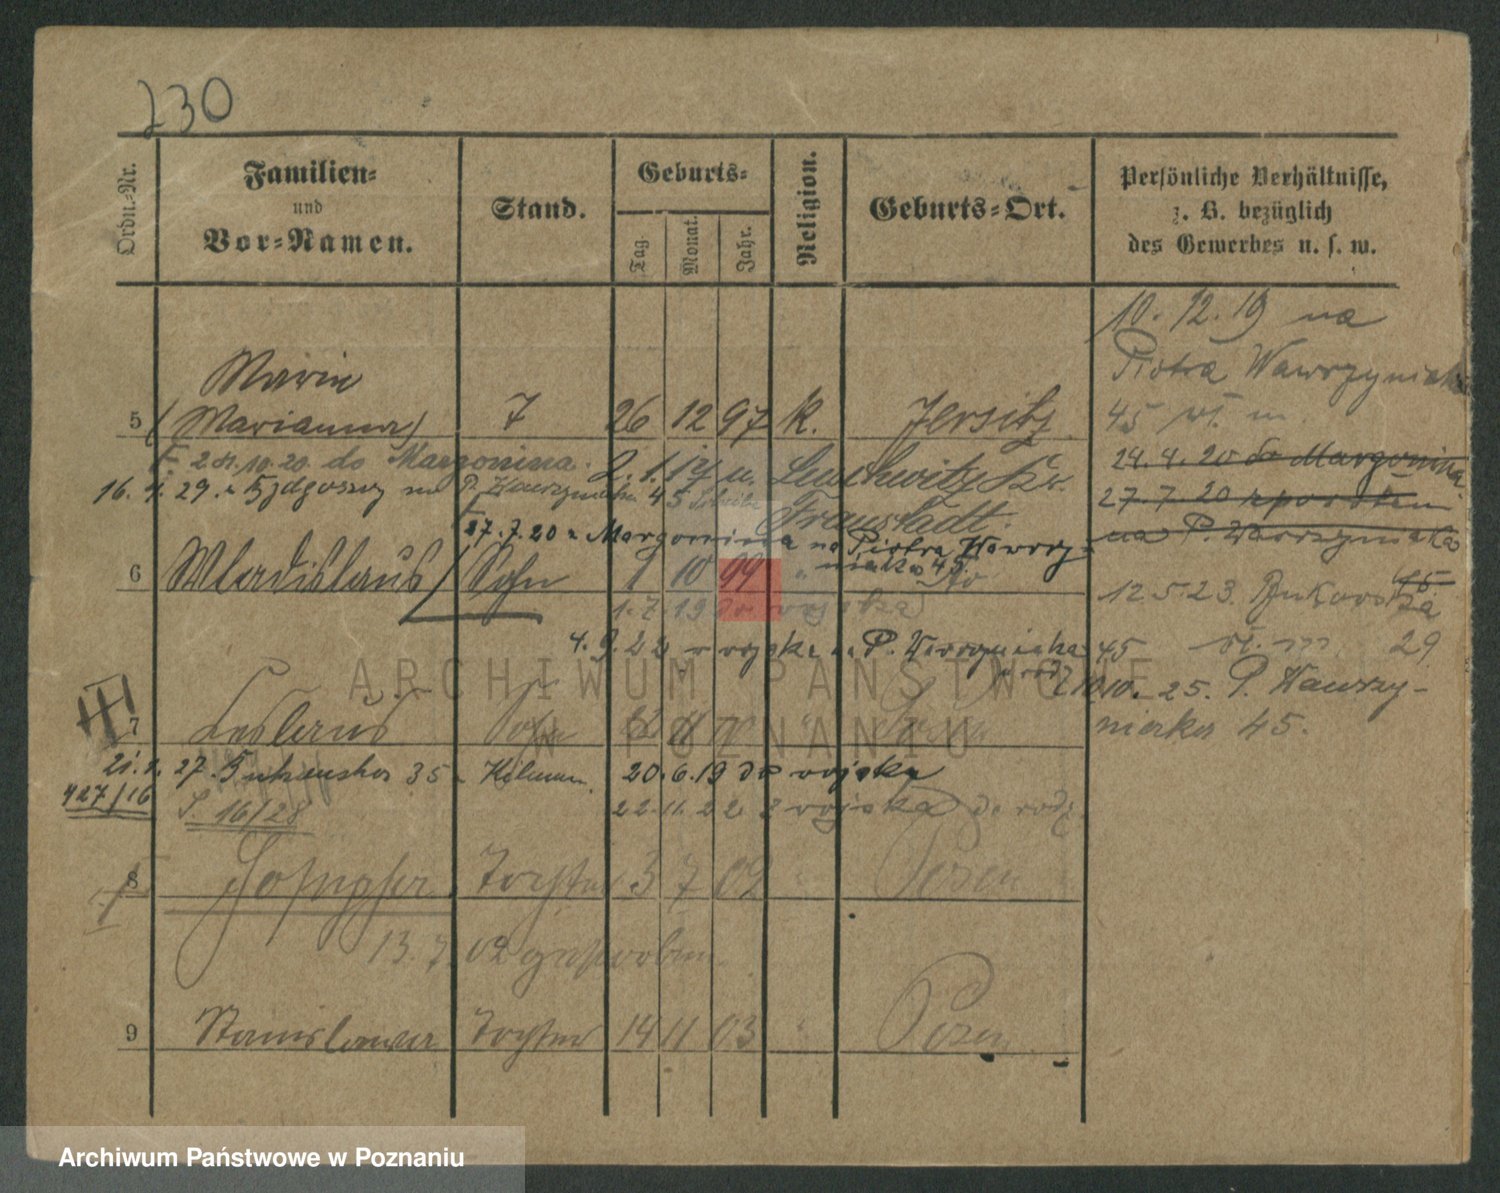 230
Ordn.-Nr.
Familien-
und
Vor-Namen.
Stand.
Geburts-
Tag.
Monat.
Jahr.
Religion.
Geburts-Ort.
Persönliche Verhältnisse,
z. B. bezüglich
des Gewerbes u. s. w.
10. 12. 19 na
Piotra Wawrzyniaka
45 m.
Maria
5 (Marianna) T 26 12 97 K. Jersitz
28.10.20. do Margonina. 2. 1. 14 u. Luschwitz Kr.
24.4.20 do Margonina
16. 4. 29. z Bydgoszczy na P. Wawrzyniaka 45
Fraustadt.
27.7.20 z powrotem
27.7.20 z Margonina na Piotra Wawrzy-
niaka 45
na P. Wawrzyniaka
6 Wladislaus Sohn 1 10 99 " do
45
1.7.19 do wojska
12.5.23. Bukowska
29
4. 9. 22 z wojska na P. Wawrzyniaka 45
10. 25. P. Wawrzy-
niaka 45.
7 Leslaus
27. 35
20.6.19 do wojska
427/16
S. 16/28
22.11.22 z wojska do rodz.
8 Tochter 3 7 02 " Posen
13. 7. 02 gestorben
9 Stanislawa Tochter 14 11 03 " Posen
ARCHIWUM PAŃSTWOWE
W POZNANIU
Archiwum Państwowe w Poznaniu